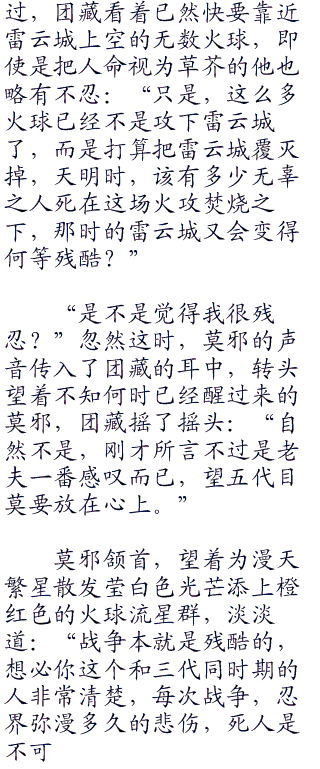 过，团藏看着已然快要靠近
雷云城上空的无数火球，即
使是把人命视为草芥的他也
略有不忍：“只是，这么多
火球已经不是攻下雷云城
了，而是打算把雷云城覆灭
掉，天明时，该有多少无辜
之人死在这场火攻焚烧之
下，那时的雷云城又会变得
何等残酷？”
“是不是觉得我很残
忍？”忽然这时，莫邪的声
音传入了团藏的耳中，转头
望着不知何时已经醒过来的
莫邪，团藏摇了摇头：“自
然不是，刚才所言不过是老
夫一番感叹而已，望五代目
莫要放在心上。”
莫邪颔首，望着为漫天
繁星散发莹白色光芒添上橙
红色的火球流星群，淡淡
道：“战争本就是残酷的，
想必你这个和三代同时期的
人非常清楚，每次战争，忍
界弥漫多久的悲伤，死人是
不可